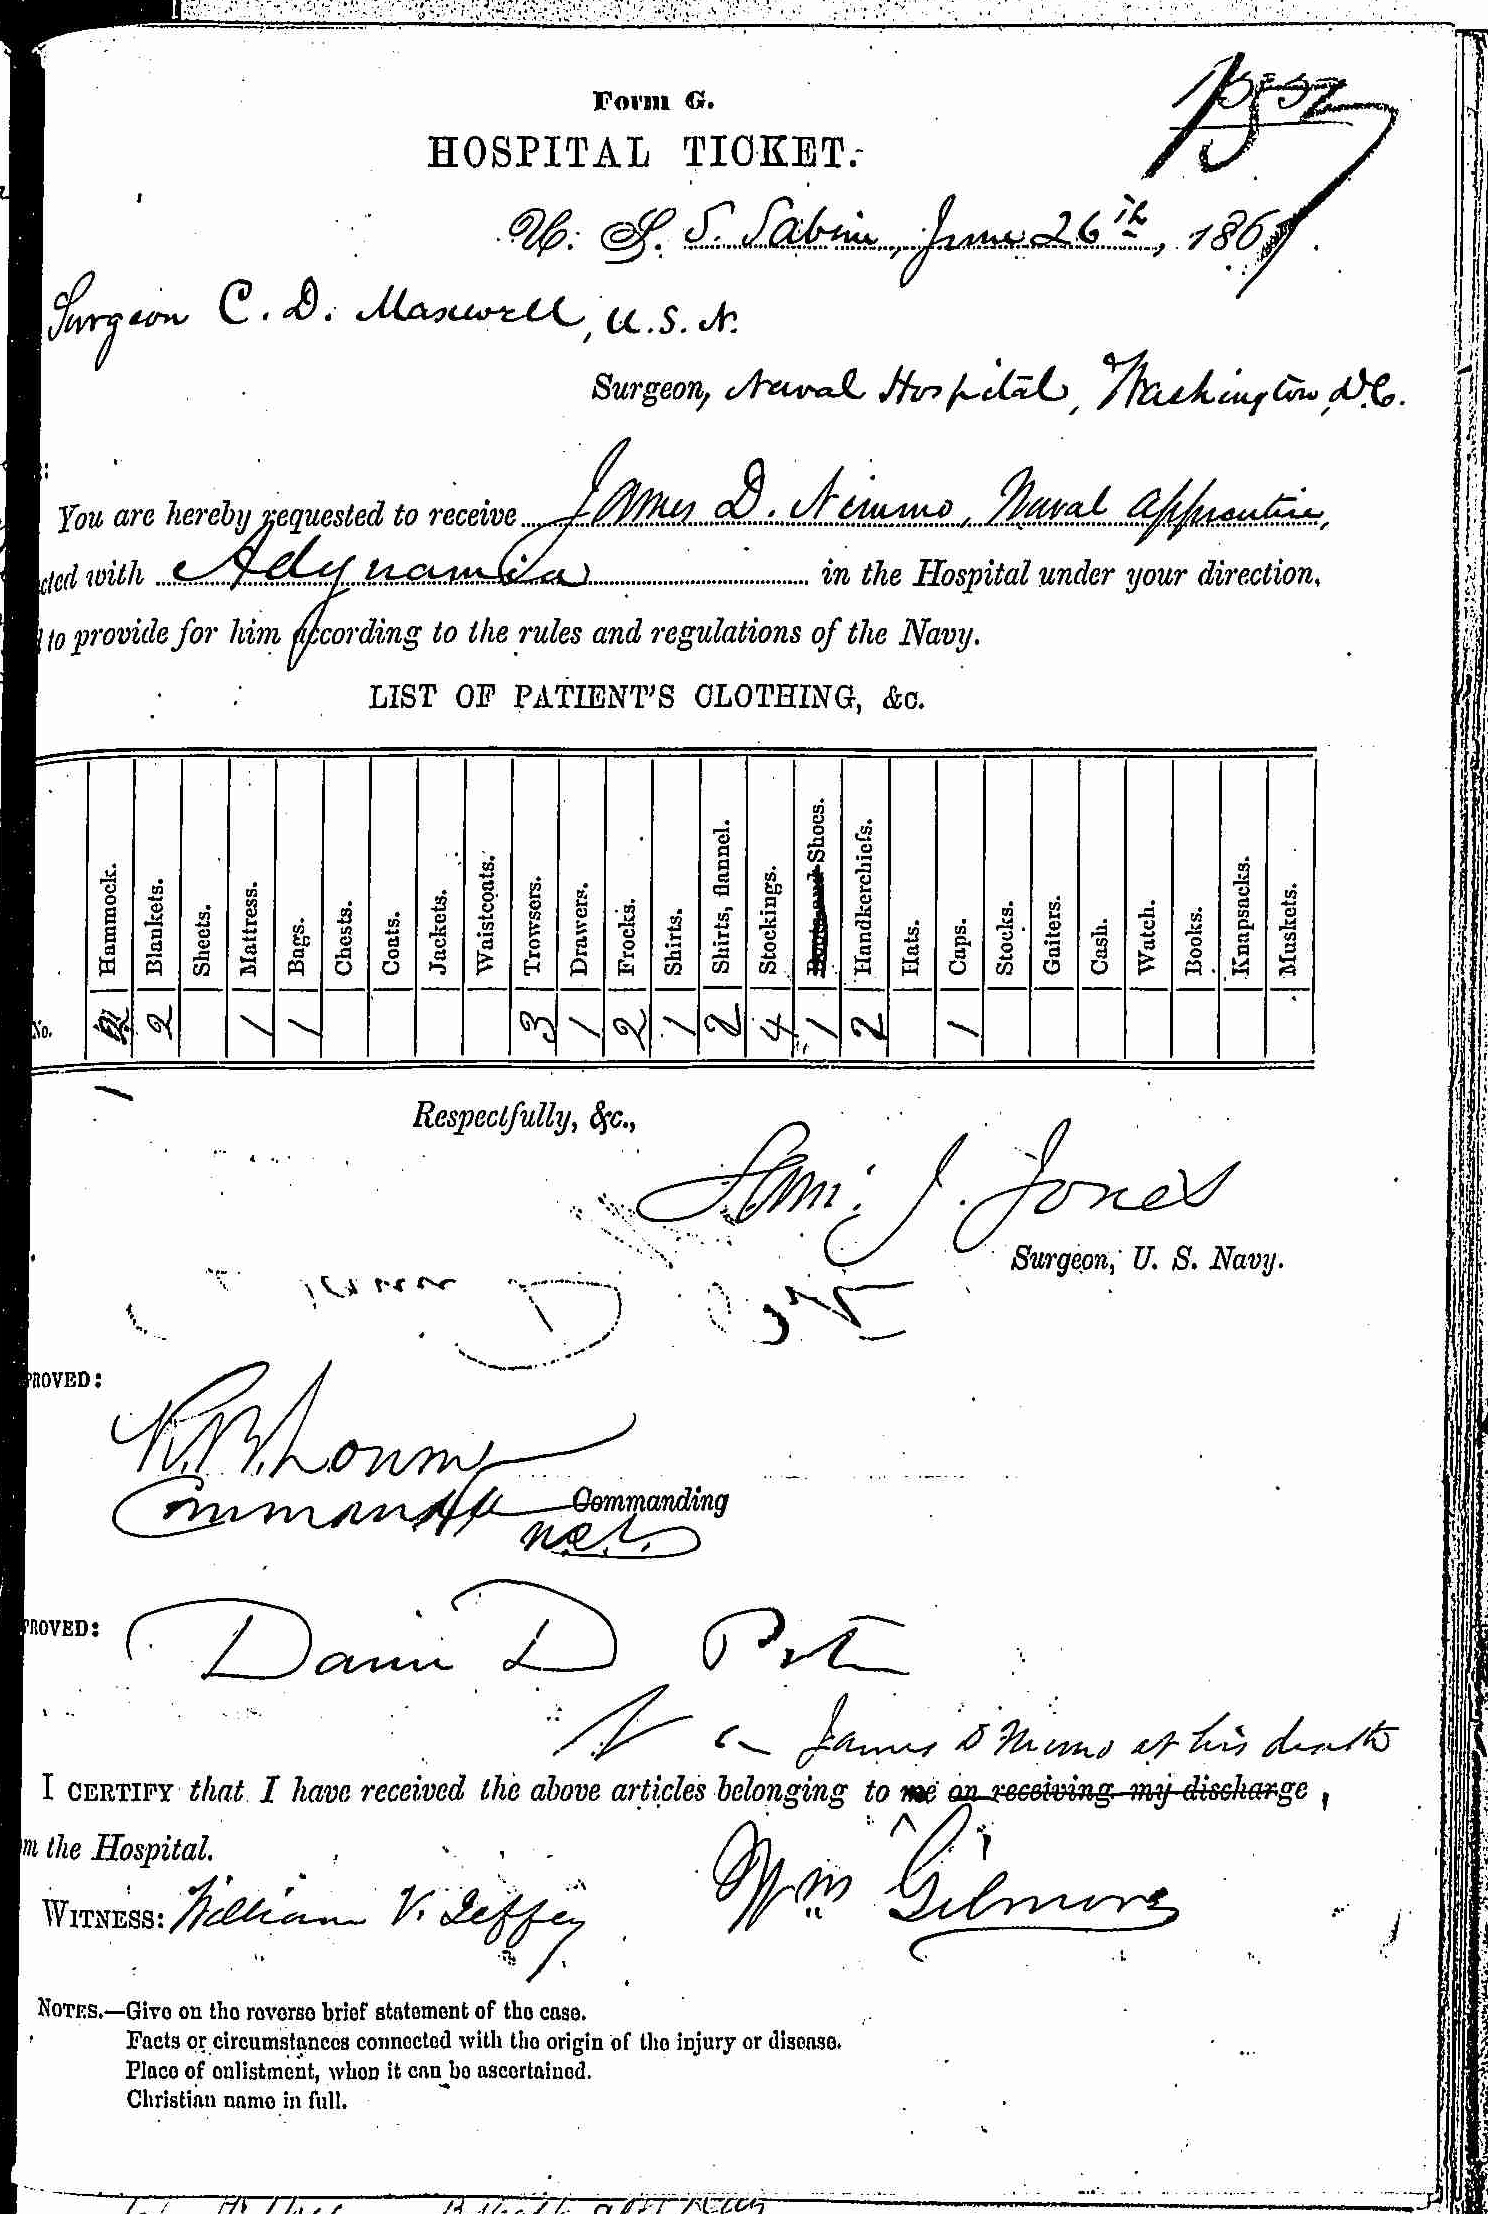 Form G.
HOSPITAL TICKET.
U. S. S. Sabine, June 26th, 186
Surgeon C. D. Maxwell, U.S.N.
Surgeon, Naval Hospital, Washington, D.C.
You are hereby requested to receive James D. Nimmo, Naval Apprentice,
cted with Adynamia in the Hospital under your direction,
to provide for him according to the rules and regulations of the Navy.
LIST OF PATIENT'S CLOTHING, &c.
Hammock. Blankets. Sheets. Mattress. Bags. Chests. Coats. Jackets. Waistcoats. Trowsers. Drawers. Frocks. Shirts. Shirts, flannel. Stockings. Boots and Shoes. Handkerchiefs. Hats. Caps. Stocks. Gaiters. Cash. Watch. Books. Knapsacks. Muskets.
No. 2 2 1 1 3 1 2 1 2 4 1 2 1
1
Respectfully, &c.,
Saml. J. Jones
Surgeon, U. S. Navy.
PROVED:
R. B. Lowry
Commander Commanding
PROVED:
David D Porter
James D Nimmo at his death
I CERTIFY that I have received the above articles belonging to me on receiving my discharge,
m the Hospital.
Wm Gilmore
WITNESS: William V. Jeffrey
NOTES.—Give on the reverse brief statement of the case.
Facts or circumstances connected with the origin of the injury or disease.
Place of enlistment, when it can be ascertained.
Christian name in full.